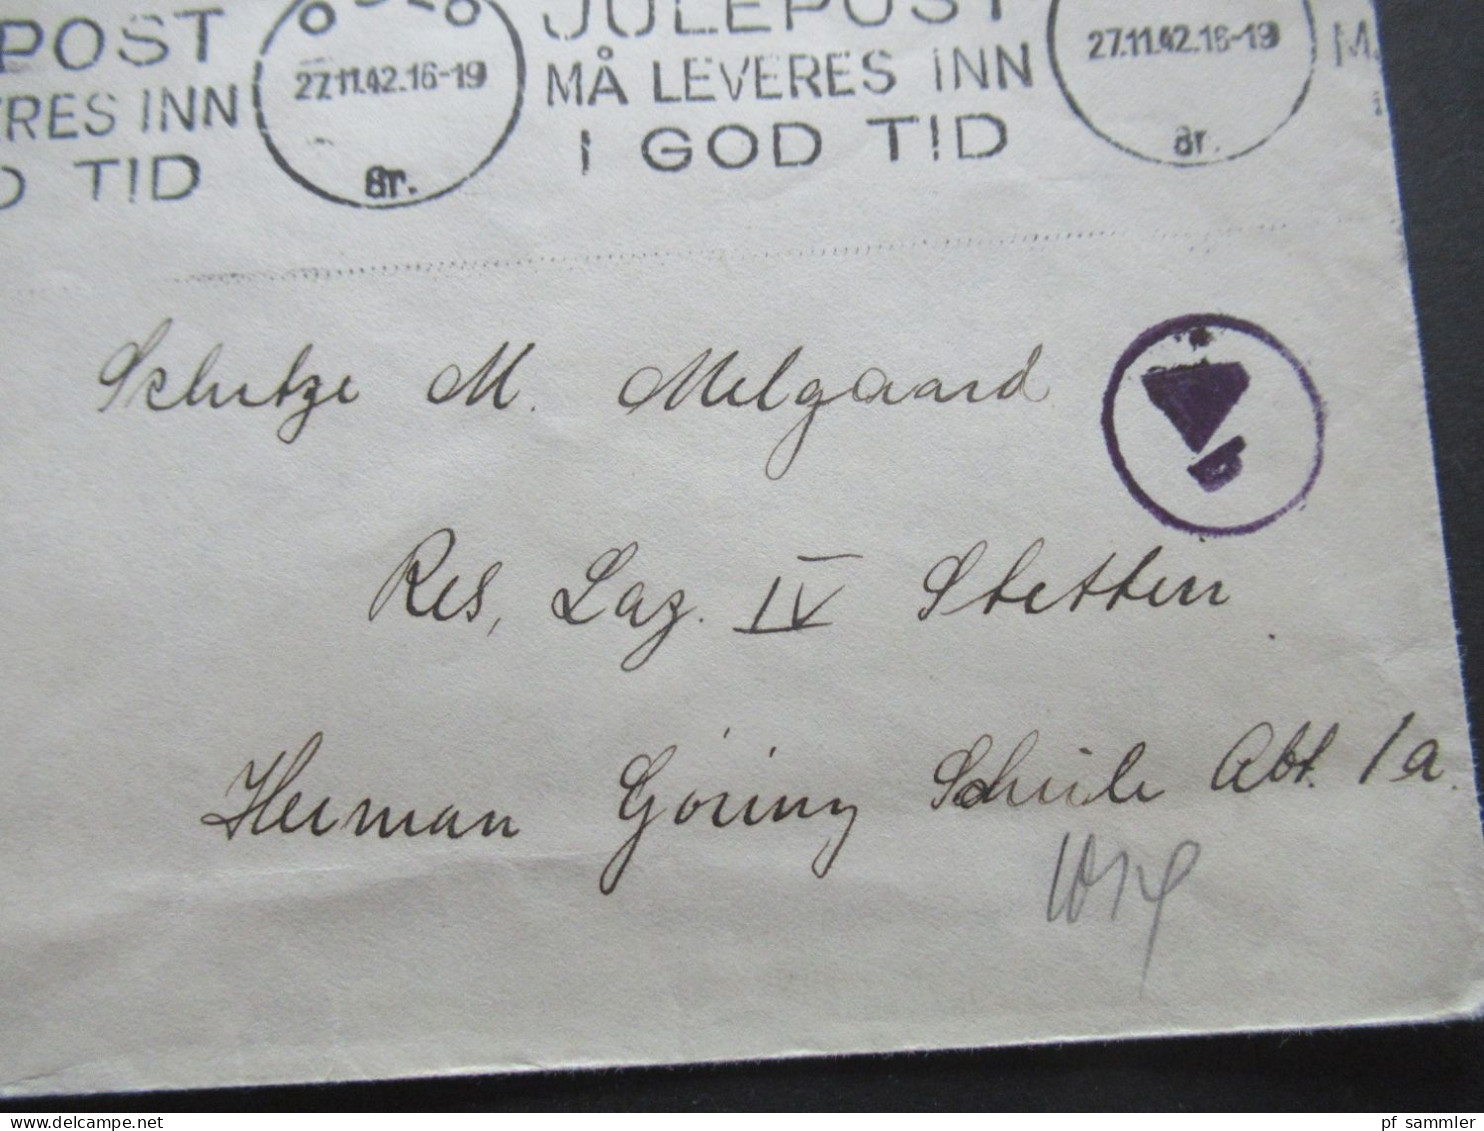 POST JULEPOST
27.11.42.16-19 MÅ LEVERES INN 27.11.42.16-19 M
RES INN I GOD TID
D TID ar. ar.
Schutze M. Melgaard
Res, Laz. IV Stettin
Herman Göring Schule Abt. 1a.
pf_sammler